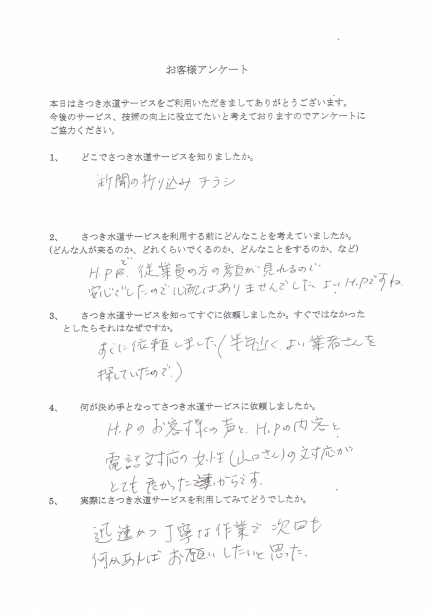 お客様アンケート
本日はさつき水道サービスをご利用いただきましてありがとうございます。
今後のサービス、技術の向上に役立てたいと考えておりますのでアンケートに
ご協力ください。
1、 どこでさつき水道サービスを知りましたか。
新聞の折り込み チラシ
2、 さつき水道サービスを利用する前にどんなことを考えていましたか。
(どんな人が来るのか、どれくらいでくるのか、どんなことをするのか、など)
H.Pで、従業員の方の顔が見れるので
安心でしたので心配はありませんでした よいH.Pですね
3、 さつき水道サービスを知ってすぐに依頼しましたか。すぐではなかった
としたらそれはなぜですか。
すぐに依頼しました(半年近く、よい業者さんを
探していたので。)
4、 何が決め手となってさつき水道サービスに依頼しましたか。
H.Pのお客様の声と、H.Pの内容と
電話対応の女性(山口さん)の対応が
とても良かったからです。
5、 実際にさつき水道サービスを利用してみてどうでしたか。
迅速かつ丁寧な作業で 次回も
何かあれば お願いしたいと思った.